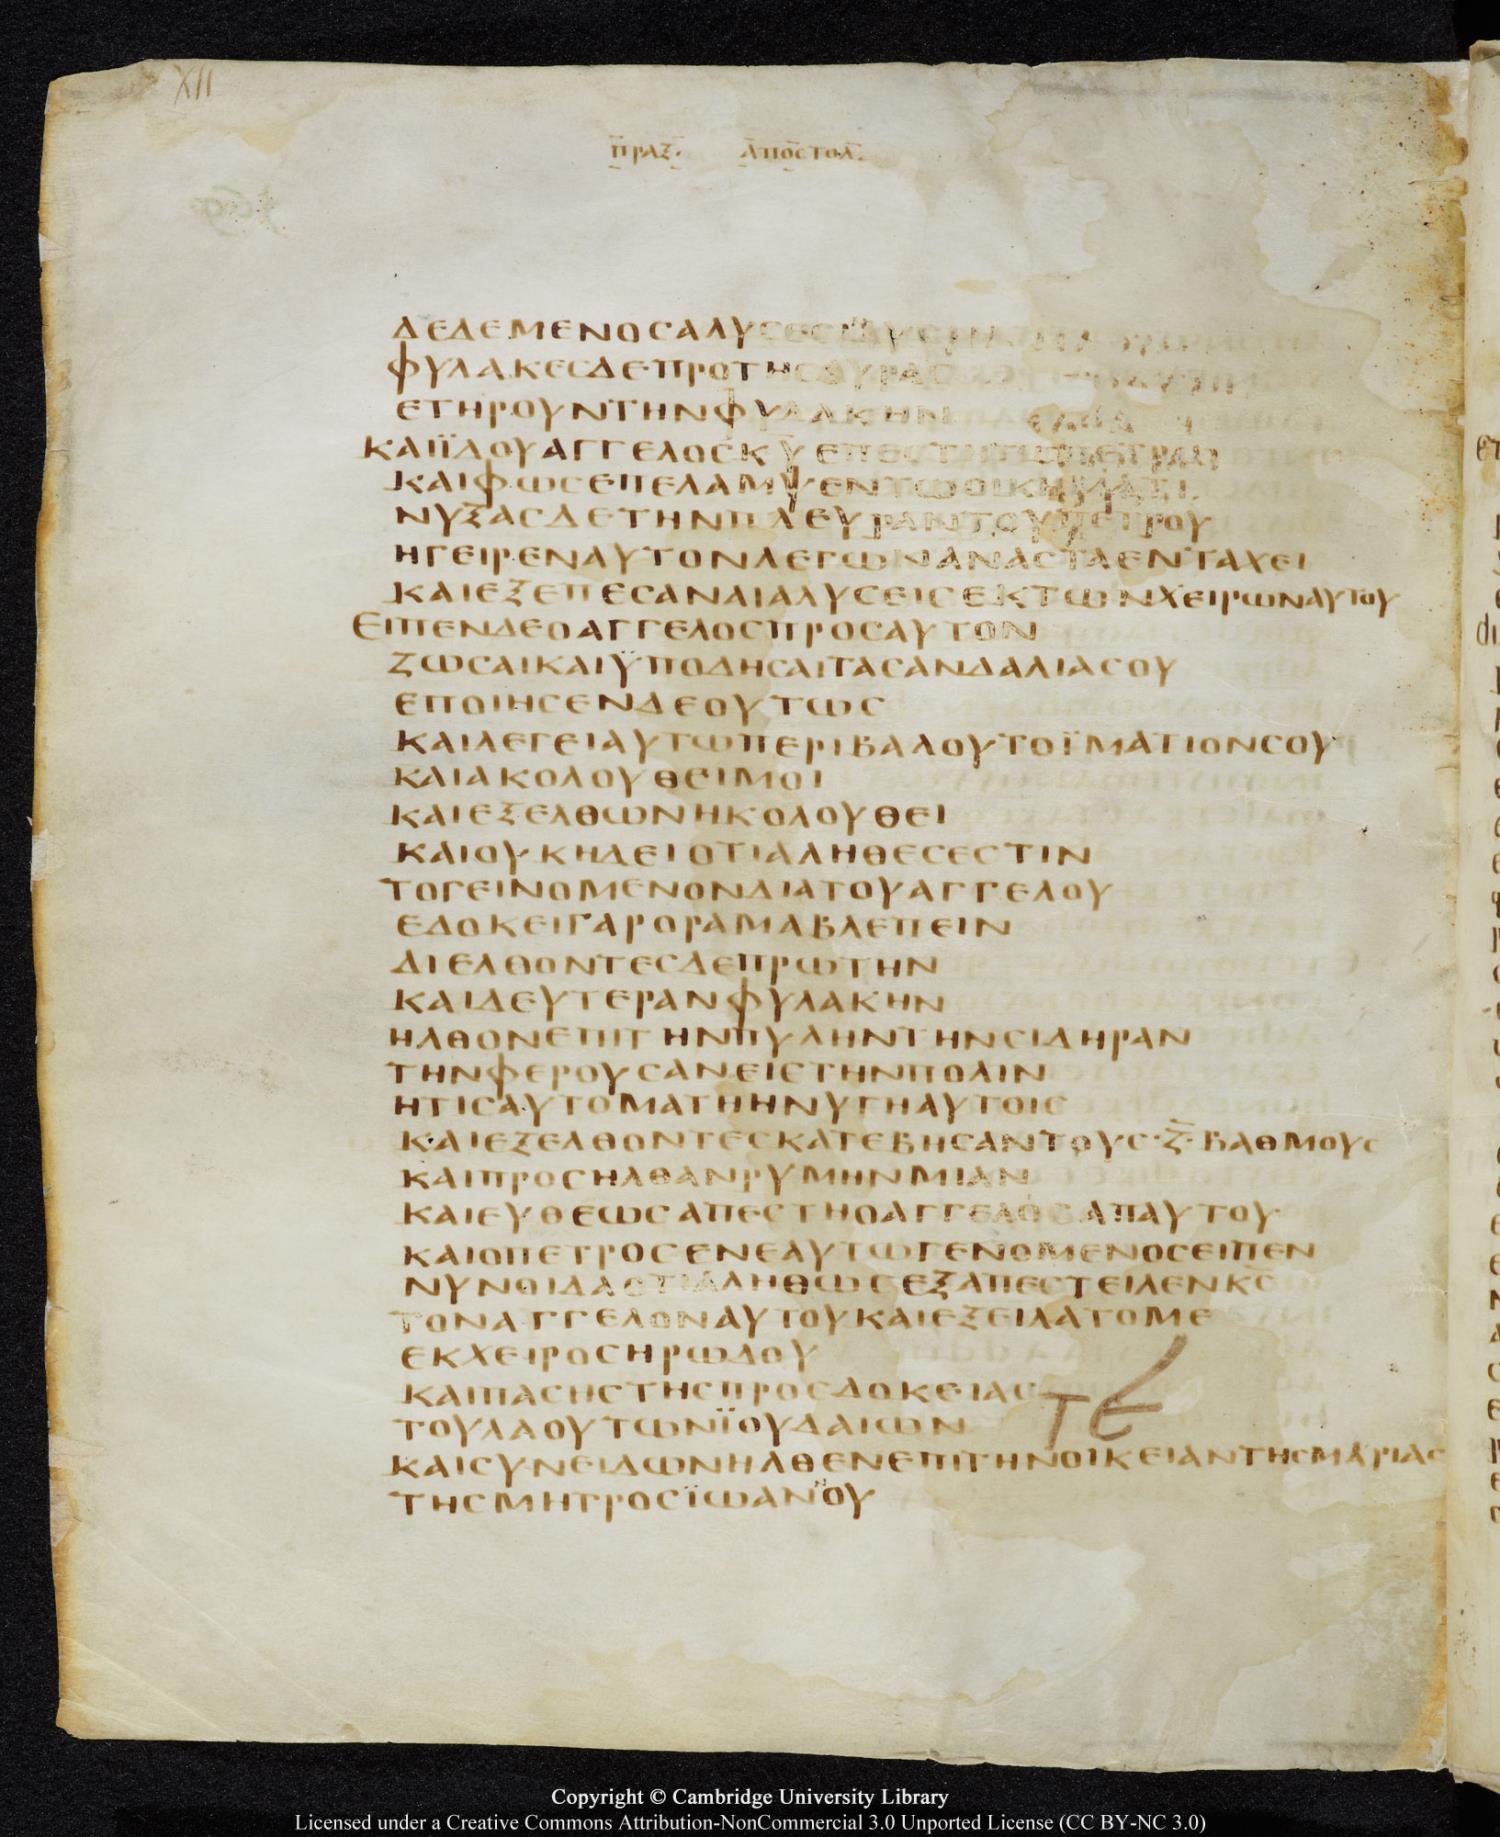 XII
ΠΡΑΞ· ΑΠΟΣΤΟΛ·
ΔΕΔΕΜΕΝΟCΑΛΥCΕCΙ
ΦΥΛΑΚΕCΔΕΠΡΟΤΗCΘΥΡΑC
ΕΤΗΡΟΥΝΤΗΝΦΥΛΑΚΗΝ
ΚΑΙΪΔΟΥΑΓΓΕΛΟCΚΥ̅ΕΠΕCΤΗΤΩΠΕΤΡΩ
ΚΑΙΦΩCΕΠΕΛΑΜΨΕΝΤΩΟΙΚΗΜΑΤΙ
ΝΥΞΑCΔΕΤΗΝΠΛΕΥΡΑΝΤΟΥΠΕΤΡΟΥ
ΗΓΕΙΡΕΝΑΥΤΟΝΛΕΓΩΝΑΝΑCΤΑΕΝΤΑΧΕΙ
ΚΑΙΕΞΕΠΕCΑΝΑΙΑΛΥCΕΙCΕΚΤΩΝΧΕΙΡΩΝΑΥΤΟΥ
ΕΙΠΕΝΔΕΟΑΓΓΕΛΟCΠΡΟCΑΥΤΟΝ
ΖΩCΑΙΚΑΙΫΠΟΔΗCΑΙΤΑCΑΝΔΑΛΙΑCΟΥ
ΕΠΟΙΗCΕΝΔΕΟΥΤΩC
ΚΑΙΛΕΓΕΙΑΥΤΩΠΕΡΙΒΑΛΟΥΤΟΪΜΑΤΙΟΝCΟΥ
ΚΑΙΑΚΟΛΟΥΘΕΙΜΟΙ
ΚΑΙΕΞΕΛΘΩΝΗΚΟΛΟΥΘΕΙ
ΚΑΙΟΥΚΗΔΕΙΟΤΙΑΛΗΘΕCΕCΤΙΝ
ΤΟΓΕΙΝΟΜΕΝΟΝΔΙΑΤΟΥΑΓΓΕΛΟΥ
ΕΔΟΚΕΙΓΑΡΟΡΑΜΑΒΛΕΠΕΙΝ
ΔΙΕΛΘΟΝΤΕCΔΕΠΡΩΤΗΝ
ΚΑΙΔΕΥΤΕΡΑΝΦΥΛΑΚΗΝ
ΗΛΘΟΝΕΠΙΤΗΝΠΥΛΗΝΤΗΝCΙΔΗΡΑΝ
ΤΗΝΦΕΡΟΥCΑΝΕΙCΤΗΝΠΟΛΙΝ
ΗΤΙCΑΥΤΟΜΑΤΗΗΝΥΓΗΑΥΤΟΙC
ΚΑΙΕΞΕΛΘΟΝΤΕCΚΑΤΕΒΗCΑΝΤΟΥC·Ζ̅·ΒΑΘΜΟΥC
ΚΑΙΠΡΟCΗΛΘΑΝΡΥΜΗΝΜΙΑΝ
ΚΑΙΕΥΘΕΩCΑΠΕCΤΗΟΑΓΓΕΛΟCΑΠΑΥΤΟΥ
ΚΑΙΟΠΕΤΡΟCΕΝΕΑΥΤΩΓΕΝΟΜΕΝΟCΕΙΠΕΝ
ΝΥΝΟΙΔΑΟΤΙΑΛΗΘΩCΕΞΑΠΕCΤΕΙΛΕΝΚC̅
ΤΟΝΑΓΓΕΛΟΝΑΥΤΟΥΚΑΙΕΞΕΙΛΑΤΟΜΕ
ΕΚΧΕΙΡΟCΗΡΩΔΟΥ
ΚΑΙΠΑCΗCΤΗCΠΡΟCΔΟΚΕΙΑC
ΤΟΥΛΑΟΥΤΩΝΪΟΥΔΑΙΩΝ ΤΕ
ΚΑΙCΥΝΕΙΔΩΝΗΛΘΕΝΕΠΙΤΗΝΟΙΚΕΙΑΝΤΗCΜΑΡΙΑC
ΤΗCΜΗΤΡΟCΪΩΑΝΟΥ
Copyright © Cambridge University Library
Licensed under a Creative Commons Attribution-NonCommercial 3.0 Unported License (CC BY-NC 3.0)